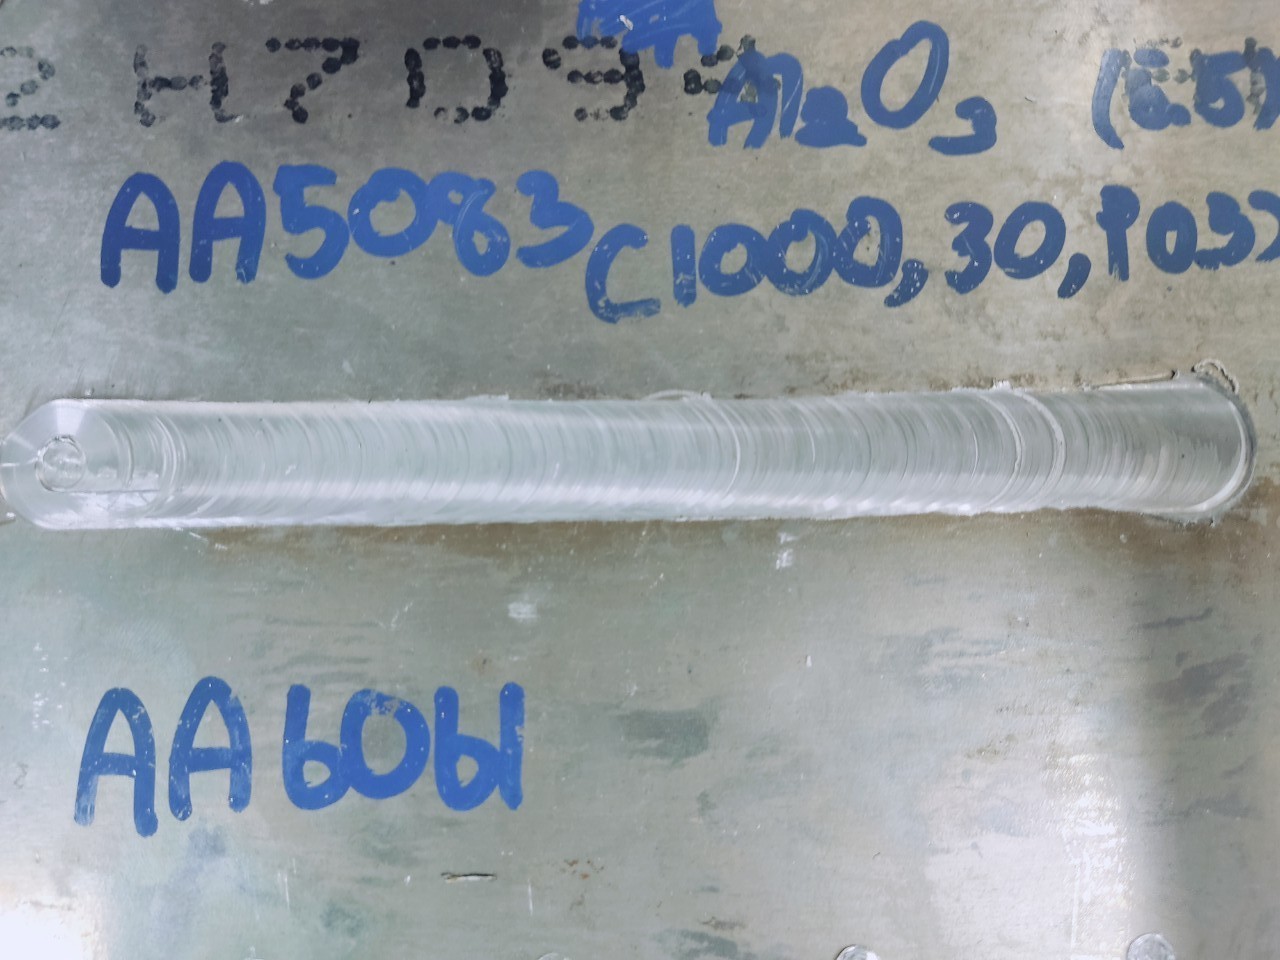 2H709
Al2O3 (E5)
AA5083 C1000,30,
AA6061